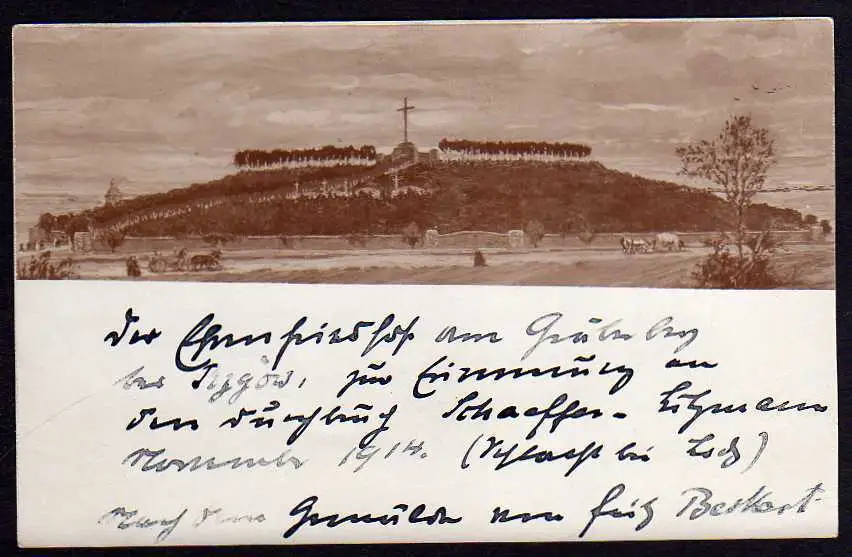 Der Ehrenfriedhof am Gräberberg
bei Rzgów, zur Erinnerung an
den Durchbruch Schaeffer-Litzmann
November 1914. (Schlacht bei Lodz)
Nach dem Gemälde von Fritz Beckert.